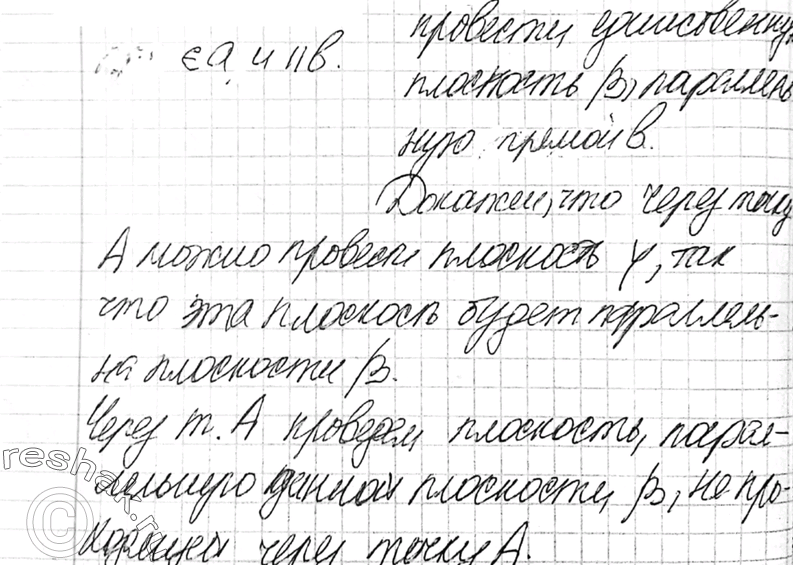 провести единственную
∈ a, и || b.
плоскость β, параллель
ную прямой b.
Докажем, что через точку
А можно провести плоскость γ, так
что эта плоскость будет параллель-
на плоскости β.
Через т. А проведем плоскость, парал-
лельную данной плоскости β, не про-
ходящей через точку А.
reshak.ru
©